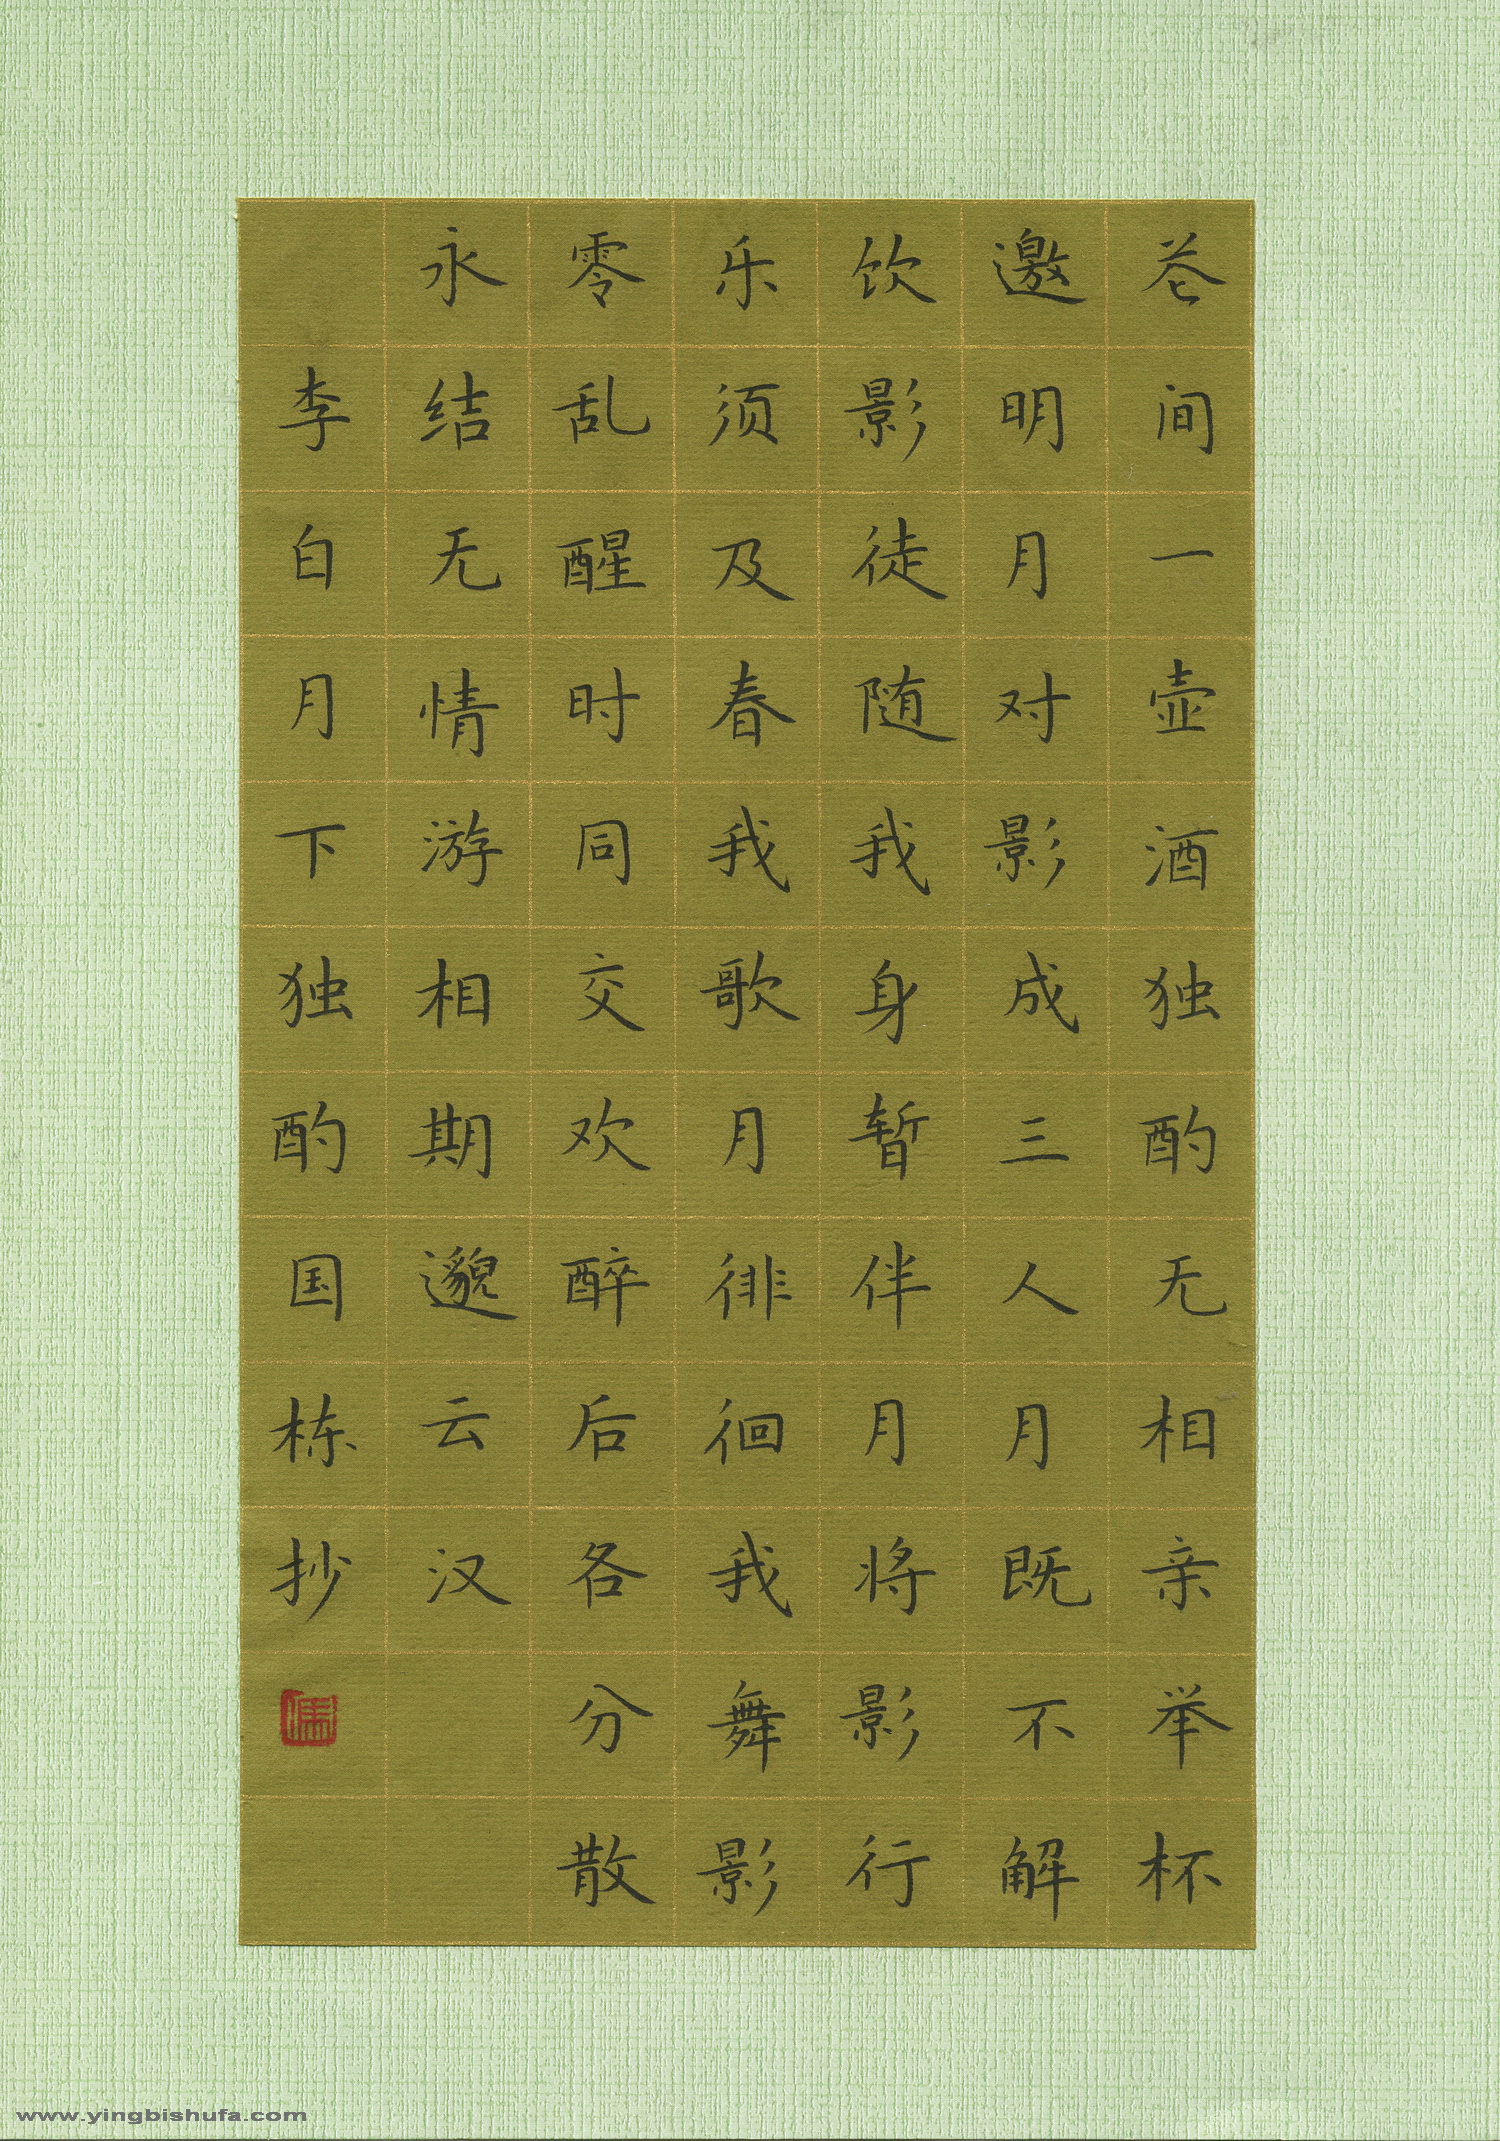 花间一壶酒独酌无相亲举杯
邀明月对影成三人月既不解
饮影徒随我身暂伴月将影行
乐须及春我歌月徘徊我舞影
零乱醒时同交欢醉后各分散
永结无情游相期邈云汉
李白月下独酌国栋抄
www.yingbishufa.com